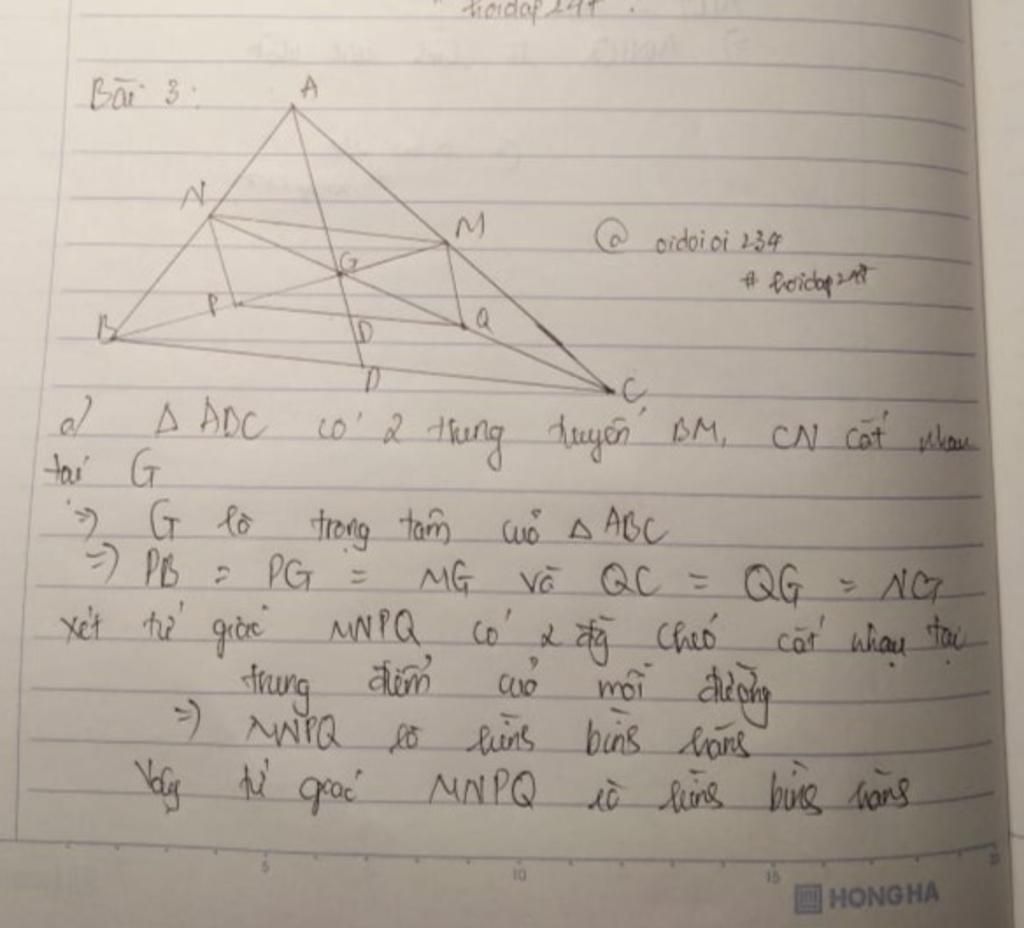 hoidap247.
Bài 3:
A
N
M
@ oidoioi 234
# hoidap247
G
P
Q
B
D
D
C
a) Δ ABC có 2 trung tuyến BM, CN cắt nhau
tại G
=> G là trọng tâm của Δ ABC
=> PB = PG = MG và QC = QG = NG
xét tứ giác MNPQ có 2 đg chéo cắt nhau tại
trung điểm của mỗi đường
=> MNPQ là hình bình hành
Vậy tứ giác MNPQ là hình bình hành
5
10
15
20
HONG HA